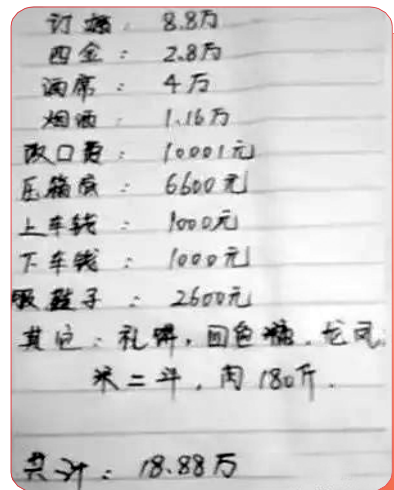 订婚：8.8万
四金：2.8万
酒席：4万
烟酒：1.16万
改口费：10001元
压箱底：6600元
上车钱：1000元
下车钱：1000元
鞋子：2600元
其它：礼饼，回色糖，龙凤，
米二斗，肉180斤．
共计：18.88万